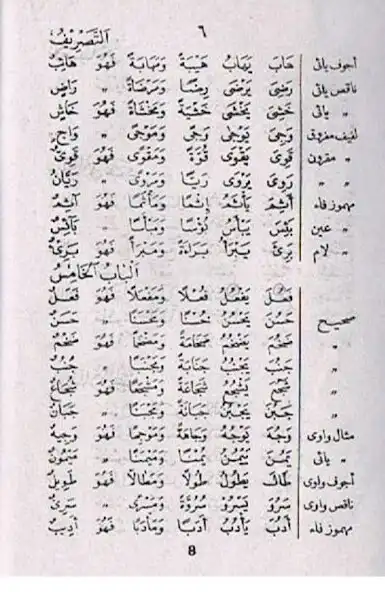 ٦
التَّصْرِيْفُ
اجوف يائى هَابَ يَهَابُ هَيْبَةً وَمَهَابَةً فَهُوَ هَائِبٌ
ناقص يائى رَضِىَ يَرْضَى رِضًا وَمَرْضَاةً " رَاضٍ
" يائى خَشِىَ يَخْشَى خَشْيَةً وَمَخْشَاةً فَهُوَ خَاشٍ
لفيف مفروق وَجِىَ يَوْجَى وَجًى وَمَوْجًى " وَاجٍ
" مقرون قَوِىَ يَقْوَى قُوَّةً وَمَقْوًى فَهُوَ قَوِىٌّ
" " رَوِىَ يَرْوَى رَيًّا وَمَرْوًى " رَيَّانُ
مهموز فاء أَثِمَ يَأْثَمُ إِثْمًا وَمَأْثَمًا فَهُوَ آثِمٌ
" عين بَئِسَ يَبْأَسُ بُؤْسًا وَمَبْأَسًا " بَائِسٌ
" لام بَرِئَ يَبْرَأُ بَرَاءَةً وَمَبْرَأً فَهُوَ بَرِىْءٌ
اَلْبَابُ الْخَامِسُ
فَعُلَ يَفْعُلُ فُعْلًا وَمَفْعَلًا فَهُوَ فَعَلٌ
صحيح حَسُنَ يَحْسُنُ حُسْنًا وَمَحْسَنًا " حَسَنٌ
" ضَخُمَ يَضْخُمُ ضَخَامَةً وَمَضْخَمًا فَهُوَ ضَخْمٌ
" جَنُبَ يَجْنُبُ جَنَابَةً وَمَجْنَبًا " جُنُبٌ
" شَجُعَ يَشْجُعُ شَجَاعَةً وَمَشْجَعًا فَهُوَ شُجَاعٌ
" جَبُنَ يَجْبُنُ جَبَانَةً وَمَجْبَنًا " جَبَانٌ
مثال واوى وَجُهَ يَوْجُهُ وَجَاهَةً وَمَوْجَهًا فَهُوَ وَجِيْهٌ
" يائى يَمُنَ يَيْمُنُ يُمْنًا وَمَيْمَنًا " مَيْمُوْنٌ
اجوف واوى طَالَ يَطُوْلُ طُوْلًا وَمَطَالًا فَهُوَ طَوِيْلٌ
ناقص واوى سَرُوَ يَسْرُوُ سَرْوَةً وَمَسْرًى " سَرِىٌّ
مهموز فاء أَدُبَ يَأْدُبُ أَدَبًا وَمَأْدَبًا فَهُوَ أَدِيْبٌ
8